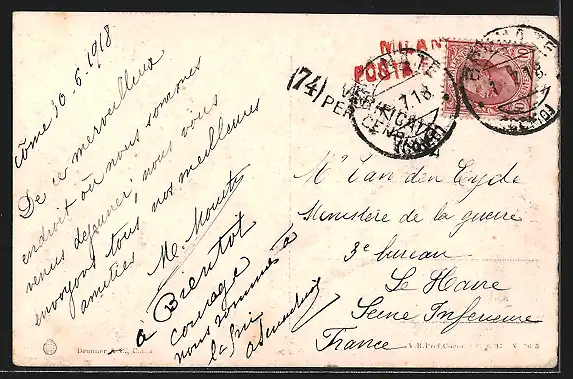 Côme 30.6.1918
De ce merveilleux
endroit où nous sommes
venus dejeuner, nous vous
envoyons tous nos meilleures
amitiés
à Bientot
courage
nous sommes à
la fin
MILAN
POSTA
(74)
VERIFICATO
PER CENSURA
7.18
Mr Van den Eyde
Ministère de la guerre
3e bureau
Le Havre
Seine Inférieure
France
Brunner & C., Como